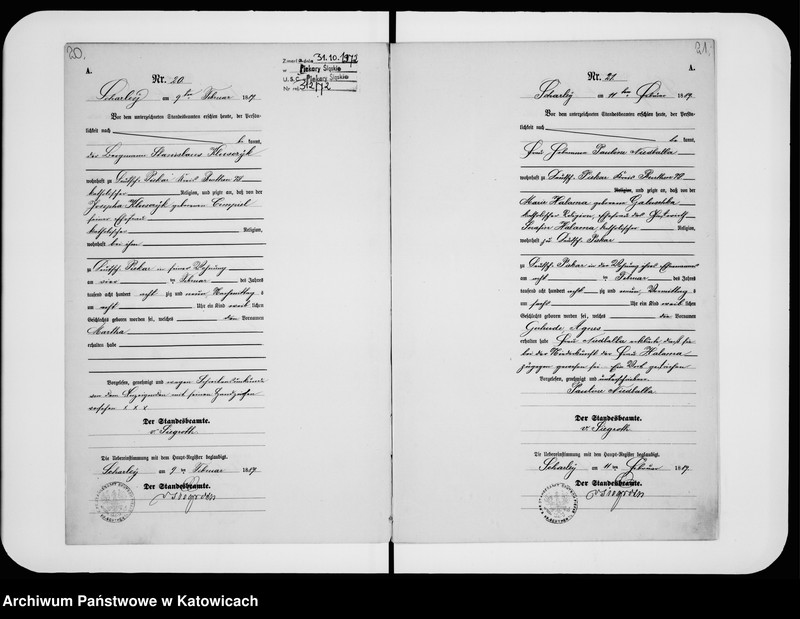 20.
A.
Nr. 20
Zmarł dnia 31.10.1972
w Piekary Śląskie
U.S.C. Piekary Śląskie
Nr 312/72
Scharley am 9ten Februar 18
Vor dem unterzeichneten Standesbeamten erschien heute, der Persön-
lichkeit nach
kannt,
der Bergmann Stanislaus
wohnhaft zu Deutsch Piekar Kreis Beuthen
katholischer Religion, und zeigte an, daß von der
Josepha geborenen
seiner Ehefrau
katholischer Religion,
wohnhaft bei ihm
zu Deutsch Piekar in seiner Wohnung
am vier Februar des Jahres
tausend acht hundert acht zig und neun Nachmittag s
um acht Uhr ein Kind weib lichen
Geschlechts geboren worden sei, welches den Vornamen
Martha
erhalten habe
Vorgelesen, genehmigt und wegen
von dem Anzeigenden mit seinem Handzeichen
versehen x x x
Der Standesbeamte.
v. Siegroth
Die Uebereinstimmung mit dem Haupt-Register beglaubigt.
Scharley am 9 Februar 18
Der Standesbeamte.
v. Siegroth
21.
A.
Nr. 21
Scharley am 11ten Februar 18
Vor dem unterzeichneten Standesbeamten erschien heute, der Persön-
lichkeit nach
kannt,
Frau Hebamme Pauline Niedballa
wohnhaft zu Deutsch Piekar Kreis Beuthen
Religion, und zeigte an, daß von der
Marie Halama geborenen Galuschka
katholischer Religion, Ehefrau des
Halama katholischer Religion,
wohnhaft zu Deutsch Piekar
zu Deutsch Piekar in der Wohnung ihres Ehemannes
am acht Februar des Jahres
tausend acht hundert acht zig und neun Vormittag s
um sechs Uhr ein Kind weib lichen
Geschlechts geboren worden sei, welches die Vornamen
Gertrude, Agnes
erhalten habe Frau Niedballa erklärte, daß sie
bei der Niederkunft der Frau Halama
zugegen gewesen sei
Vorgelesen, genehmigt und unterschrieben
Pauline Niedballa
Der Standesbeamte.
v. Siegroth
Die Uebereinstimmung mit dem Haupt-Register beglaubigt.
Scharley am 11 Februar 18
Der Standesbeamte.
v. Siegroth
Archiwum Państwowe w Katowicach